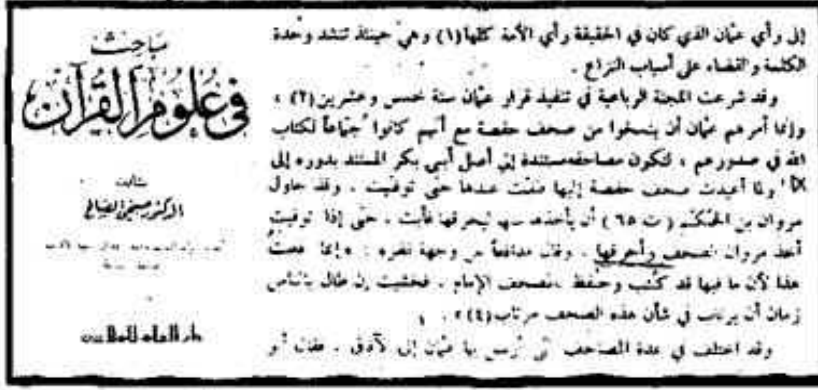 مباحث
في علوم القرآن
تأليف
الدكتور صبحي الصالح
دار العلم للملايين
إلى رأي عثمان الذي كان في الحقيقة رأي الأمة كلها (١) وهي حينئذ تنشد وحدة
الكلمة والقضاء على أسباب النزاع .
وقد شرعت اللجنة الرباعية في تنفيذ قرار عثمان سنة خمس وعشرين (٢) ،
وإنما أمرهم عثمان أن ينسخوا من صحف حفصة مع أنهم كانوا جمّاعاً لكتاب
الله في صدورهم ، لتكون مصاحفه مستندة إلى أصل أبي بكر المستند بدوره إلى
ولما أعيدت صحف حفصة إليها ظلت عندها حتى توفيت . وقد حاول
مروان بن الحكم (ت ٦٥) أن يأخذها منها ليحرقها فأبت . حتى إذا توفيت
أخذ مروان الصحف وأحرقها . وقال مدافعاً عن وجهة نظره : « إنما فعلت
هذا لأن ما فيها قد كتب وحفظ بالمصحف الإمام . فخشيت إن طال بالناس
زمان أن يرتاب في شأن هذه الصحف مرتاب (٤) » .
وقد اختلف في عدة المصاحف التي أرسل بها عثمان إلى الآفاق . فقال أبو